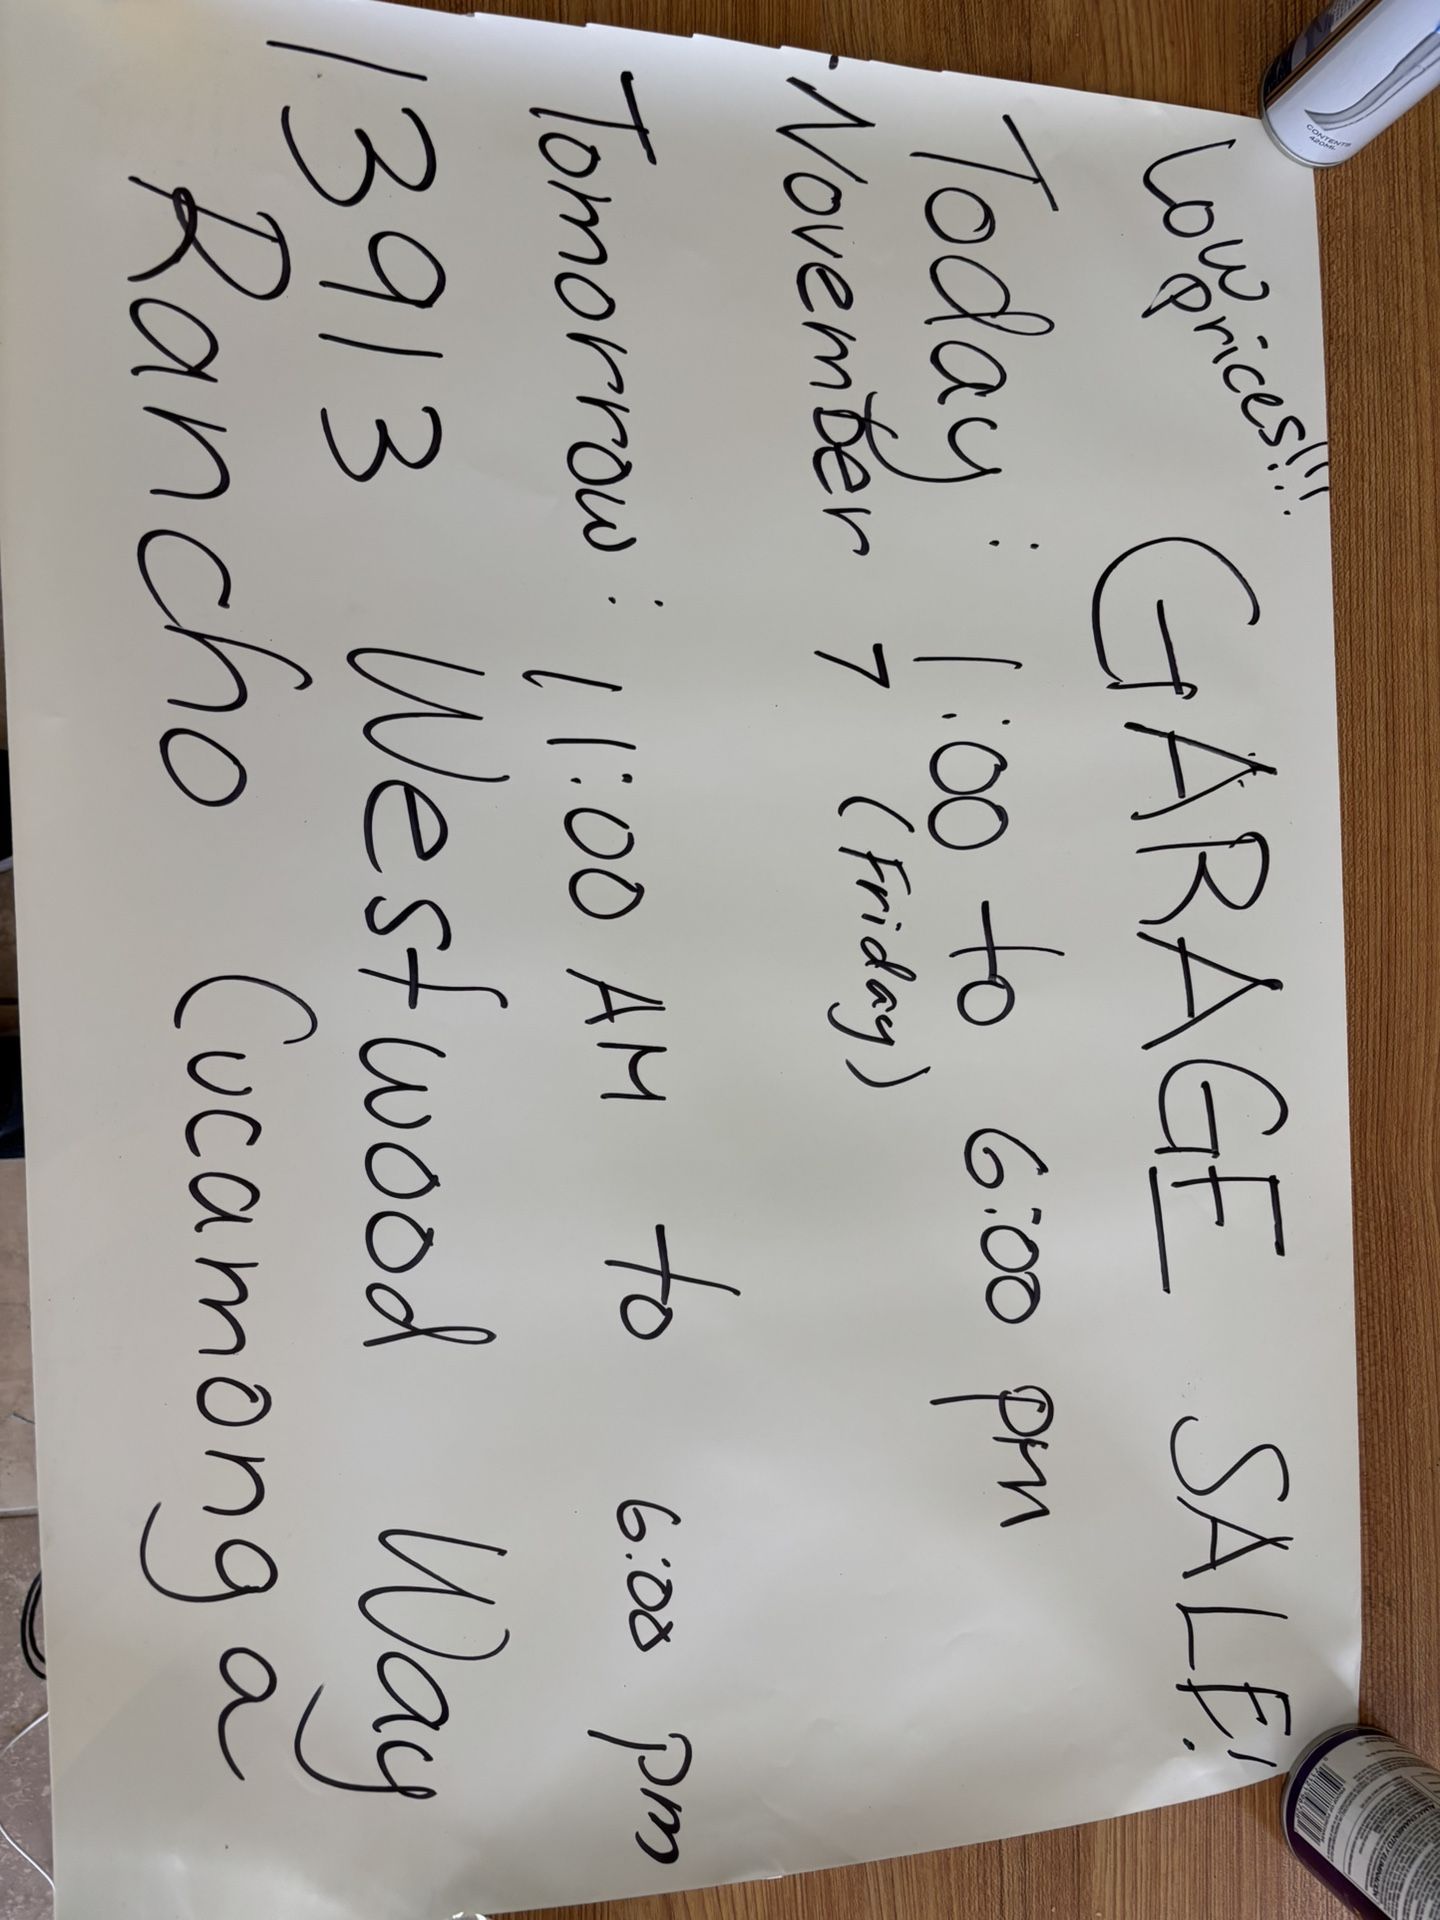 Low prices!!!
GARAGE SALE!
Today: 1:00 to 6:00 pm
November 7 (Friday)
Tomorrow: 11:00 AM to 6:00 pm
13913 Westwood Way
Rancho Cucamonga
CONTENTS
420ML